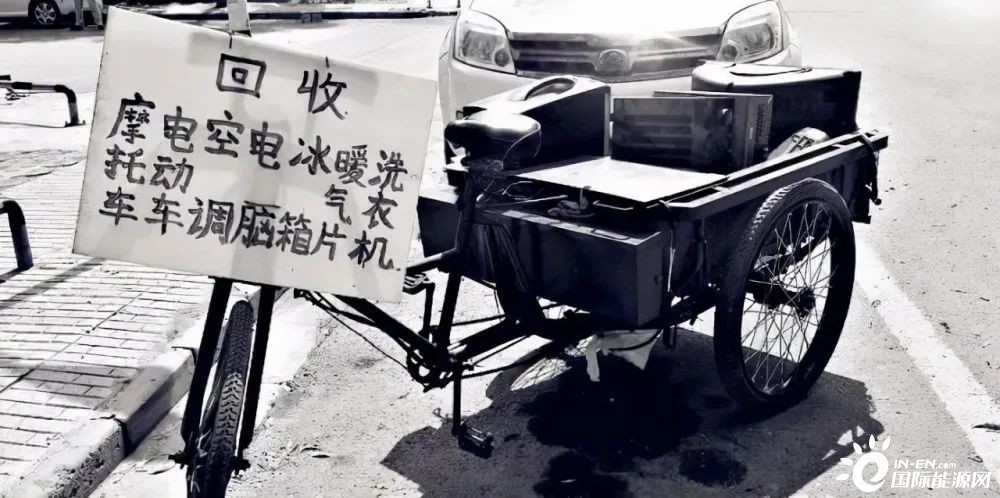 回收
摩托车
电动车
空调
电脑
冰箱
暖气片
洗衣机
IN-EN.com
国际能源网